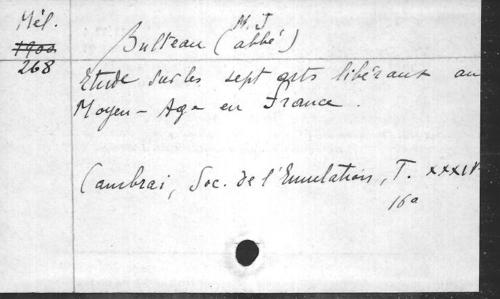 Mél.
1900
268
Bulteau (M. J abbé)
Etude sur les sept arts libéraux au
Moyen-Age en France.
Cambrai, Soc. de l'Emulation, T. XXXIV